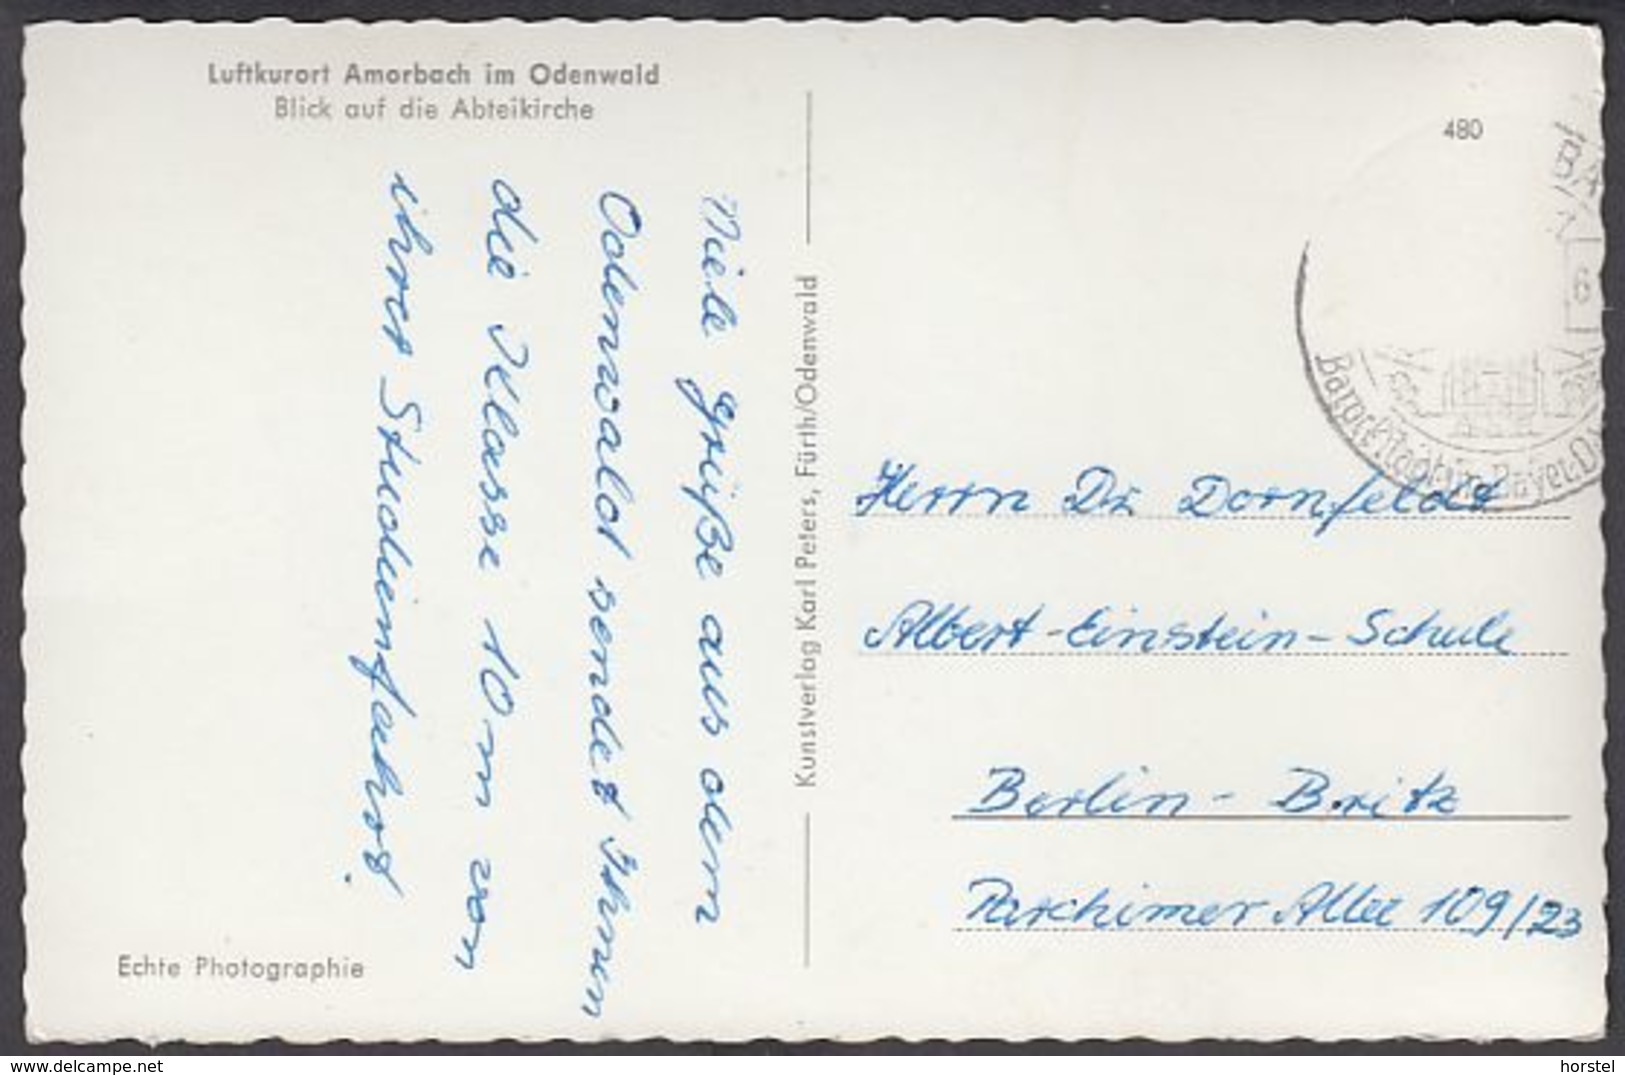 Luftkurort Amorbach im Odenwald
Blick auf die Abteikirche
Viele Grüße aus dem
Odenwald sendet Ihnen
die Klasse 10m von
ihrer Studienfahrt.
Echte Photographie
Kunstverlag Karl Peters, Fürth/Odenwald
480
6
Herrn Dr. Dornfeldt
Albert-Einstein-Schule
Berlin-Britz
Parchimer Allee 109/23
delcampe.net
horstel